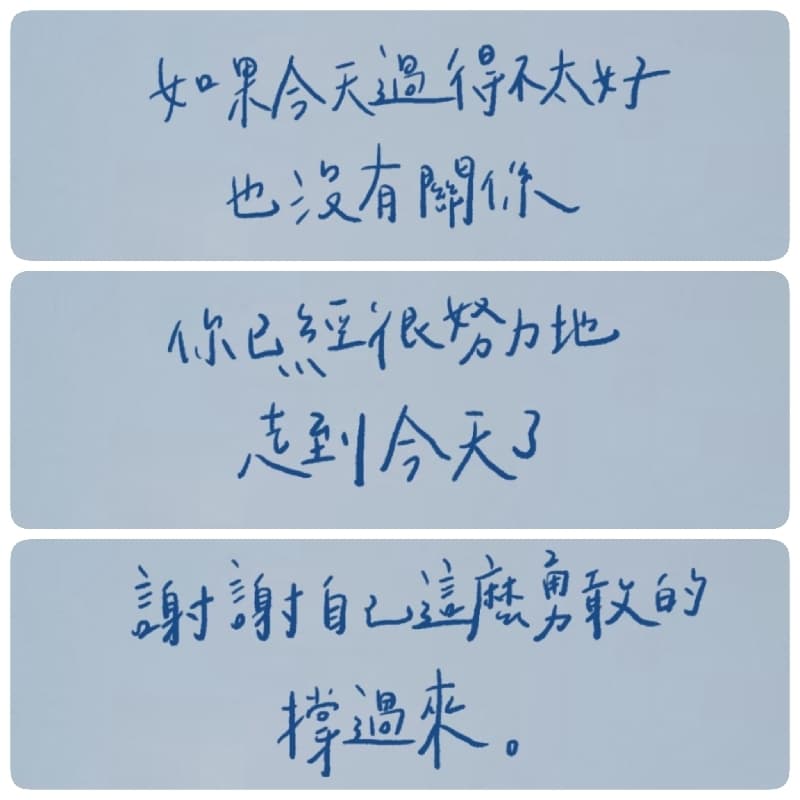 如果今天過得不太好
也沒有關係
你已經很努力地
走到今天了
謝謝自己這麼勇敢的
撐過來。